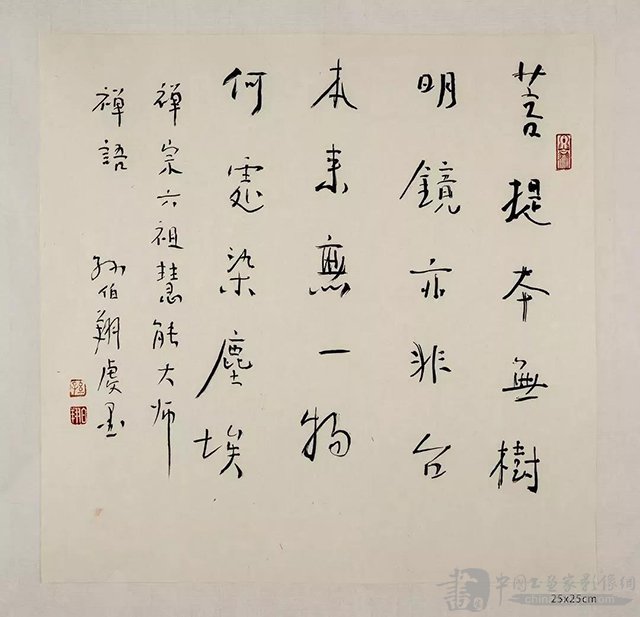 菩提本無樹
明鏡亦非台
本来無一物
何處染塵埃
禪宗六祖慧能大师
禪語 孙伯翔虔墨
書
中国书画家影像網
25x25cm